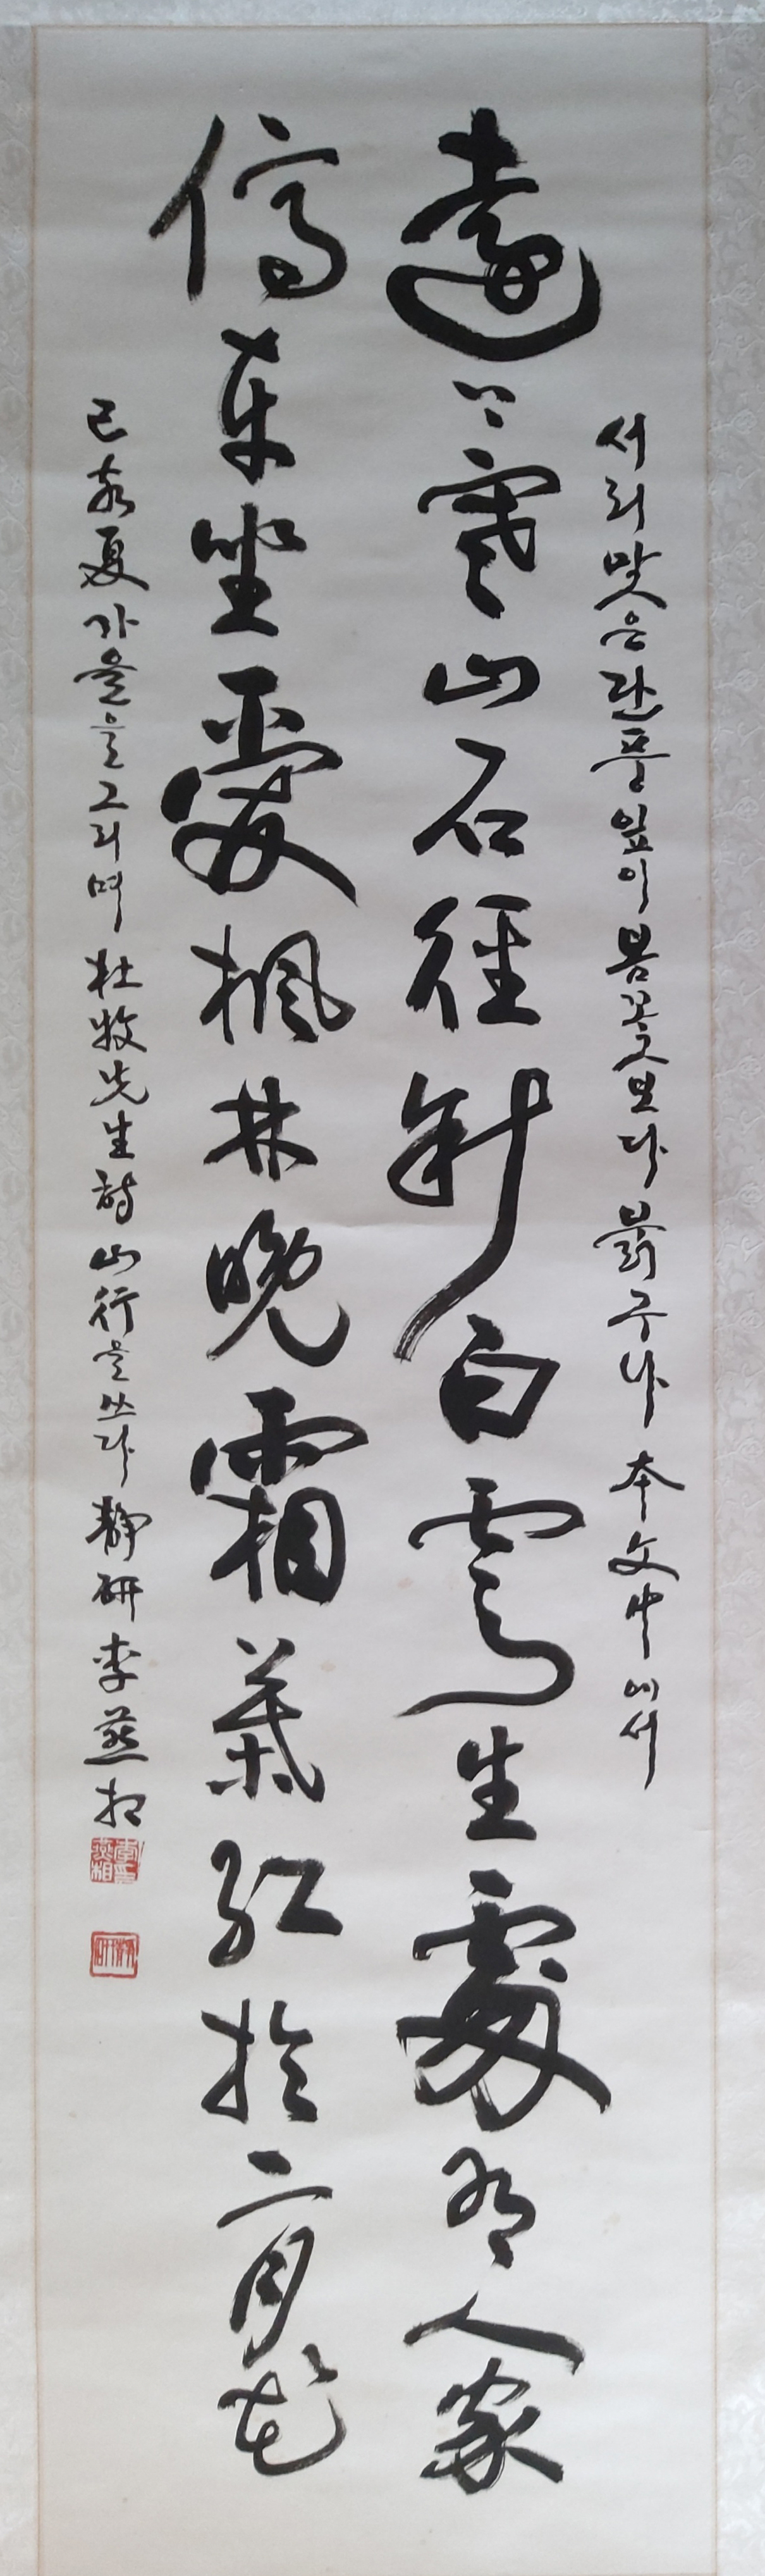 서리맞은 단풍잎이 봄꽃보다 붉구나 本文中에서
遠上寒山石徑斜白雲生處有人家
停車坐愛楓林晩霜葉紅於二月花
己亥夏 가을을 그리며 杜牧先生詩 山行을 쓰다 靜研 李燕相